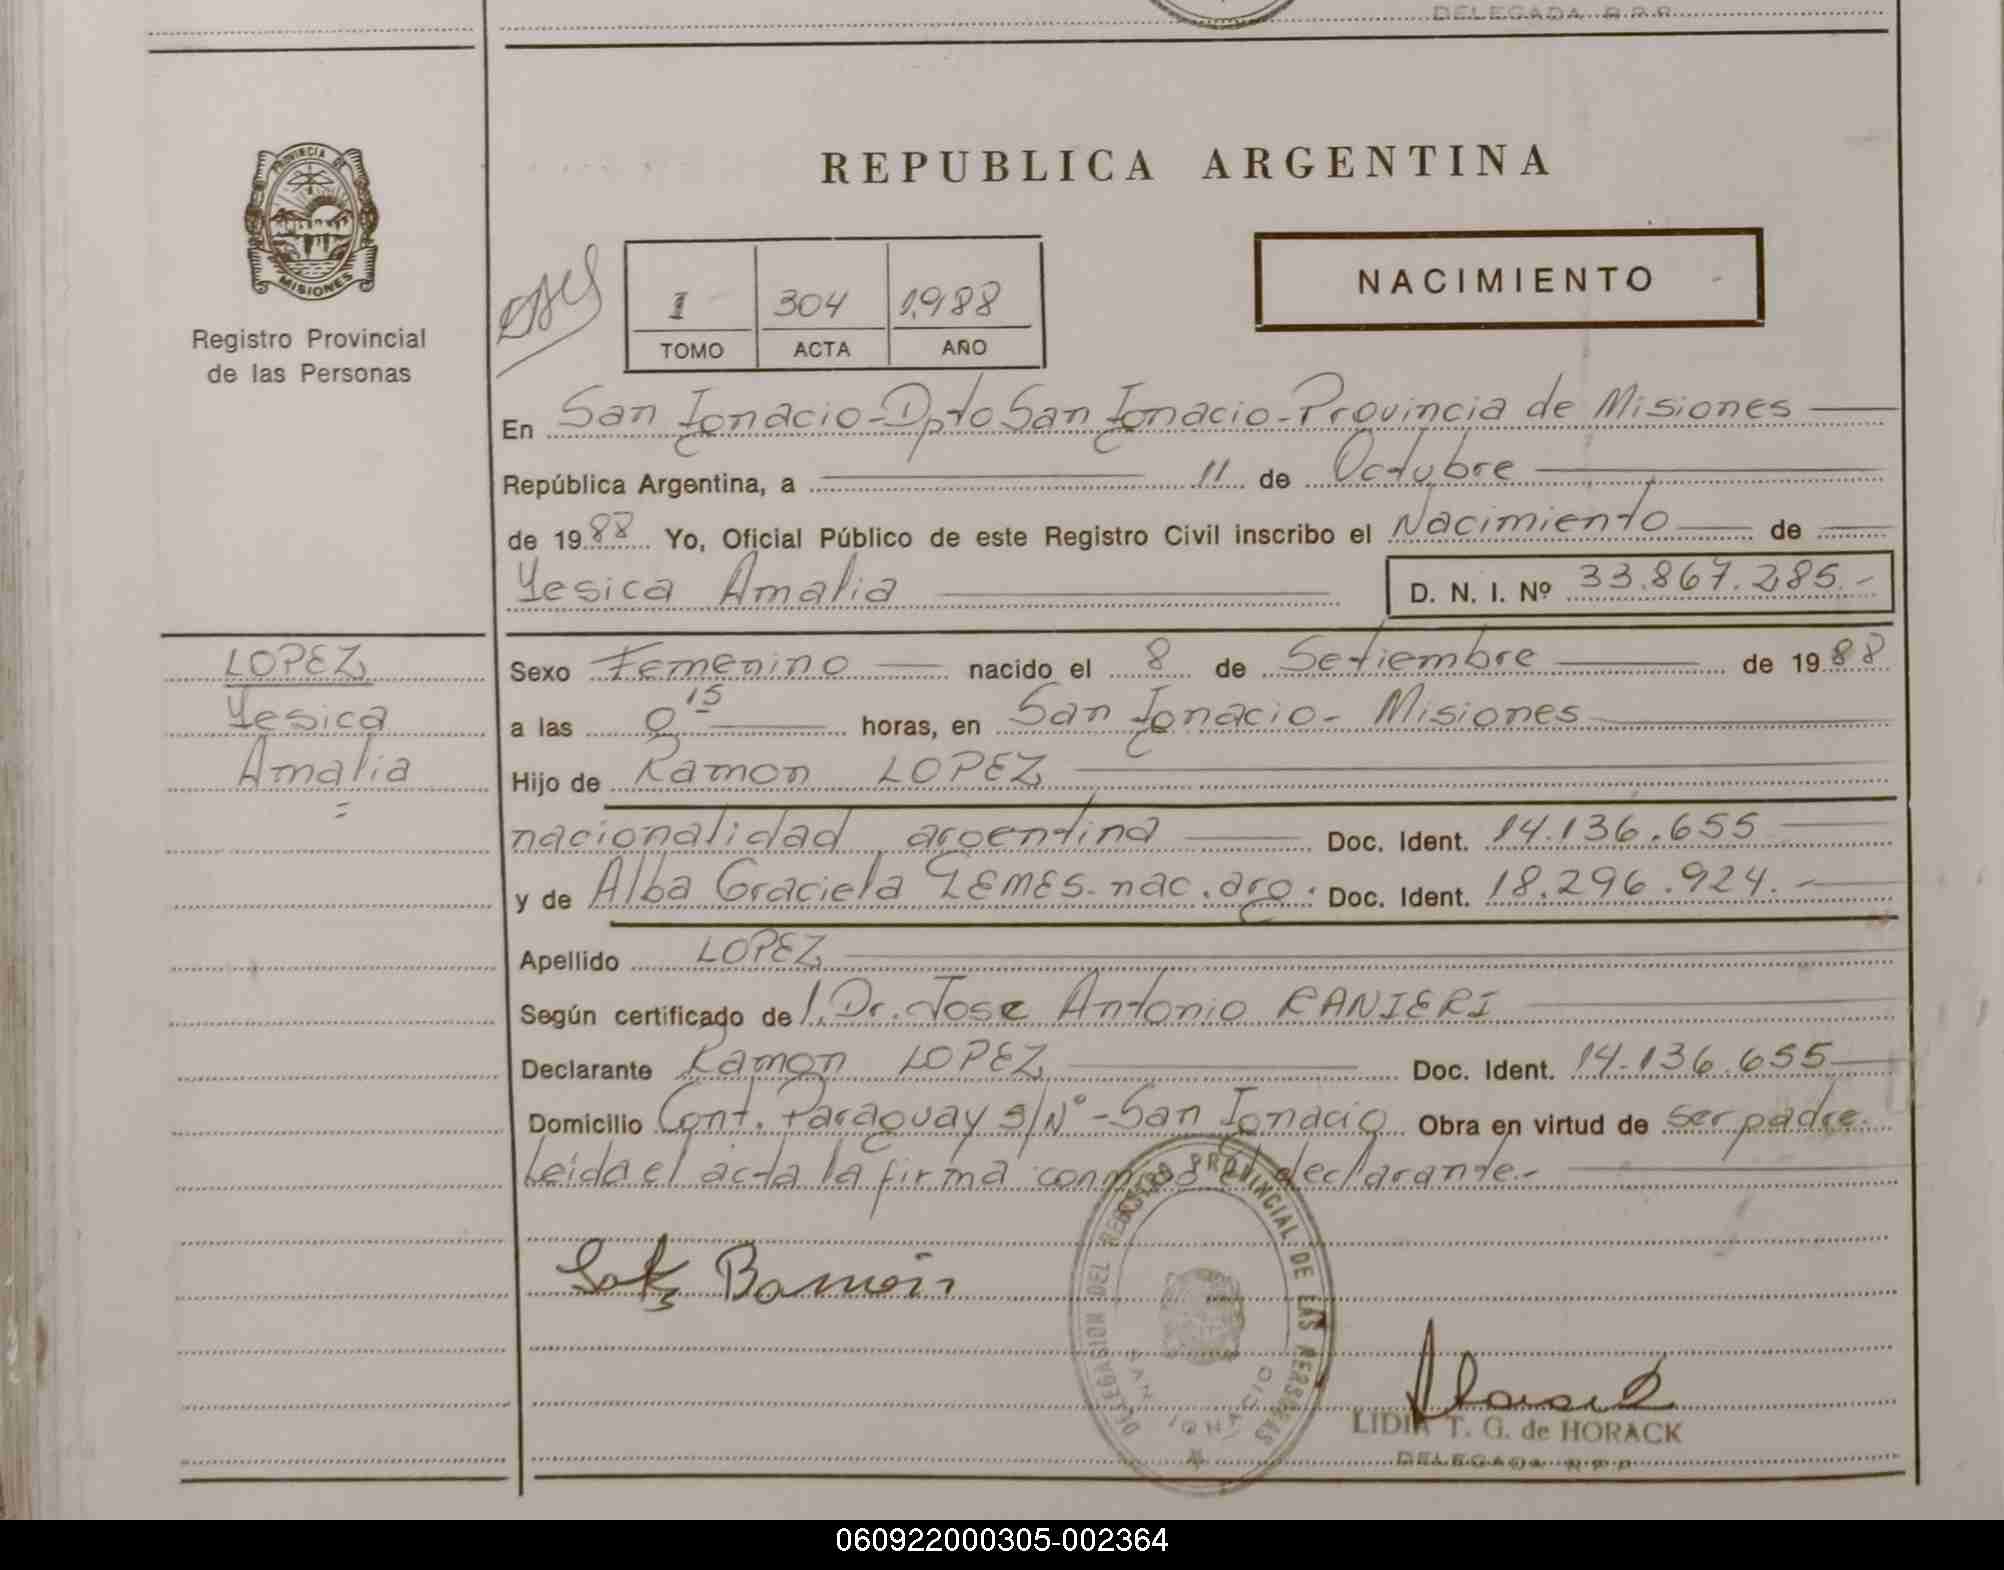 DELEGADA R.P.P.
PROVINCIA DE
MISIONES
Registro Provincial
de las Personas
REPUBLICA ARGENTINA
NACIMIENTO
1 304 1988
TOMO ACTA AÑO
En San Ignacio-Dpto San Ignacio-Provincia de Misiones
República Argentina, a 11 de Octubre
de 1988 Yo, Oficial Público de este Registro Civil inscribo el Nacimiento de
Yesica Amalia D. N. I. Nº 33.867.285.-
LOPEZ
Yesica
Amalia
=
Sexo Femenino nacido el 8 de Setiembre de 1988
a las 0 15 horas, en San Ignacio- Misiones
Hijo de Ramon LOPEZ
nacionalidad argentina Doc. Ident. 14.136.655
y de Alba Graciela nac. arg. Doc. Ident. 18.296.924.-
Apellido LOPEZ
Según certificado de l. Dr. Jose Antonio RANIERI
Declarante Ramon LOPEZ Doc. Ident. 14.136.655
Domicilio Cont. Paraguay s/Nº-San Ignacio Obra en virtud de ser padre.
Leida el acta la firma conmigo el declarante.-
Ramón
DELEGASION DEL REGISTRO PROVINCIAL DE LAS PERSONAS
SAN IGNACIO
LIDIA T. G. de HORACK
DELEGADA R.P.P.
060922000305-002364